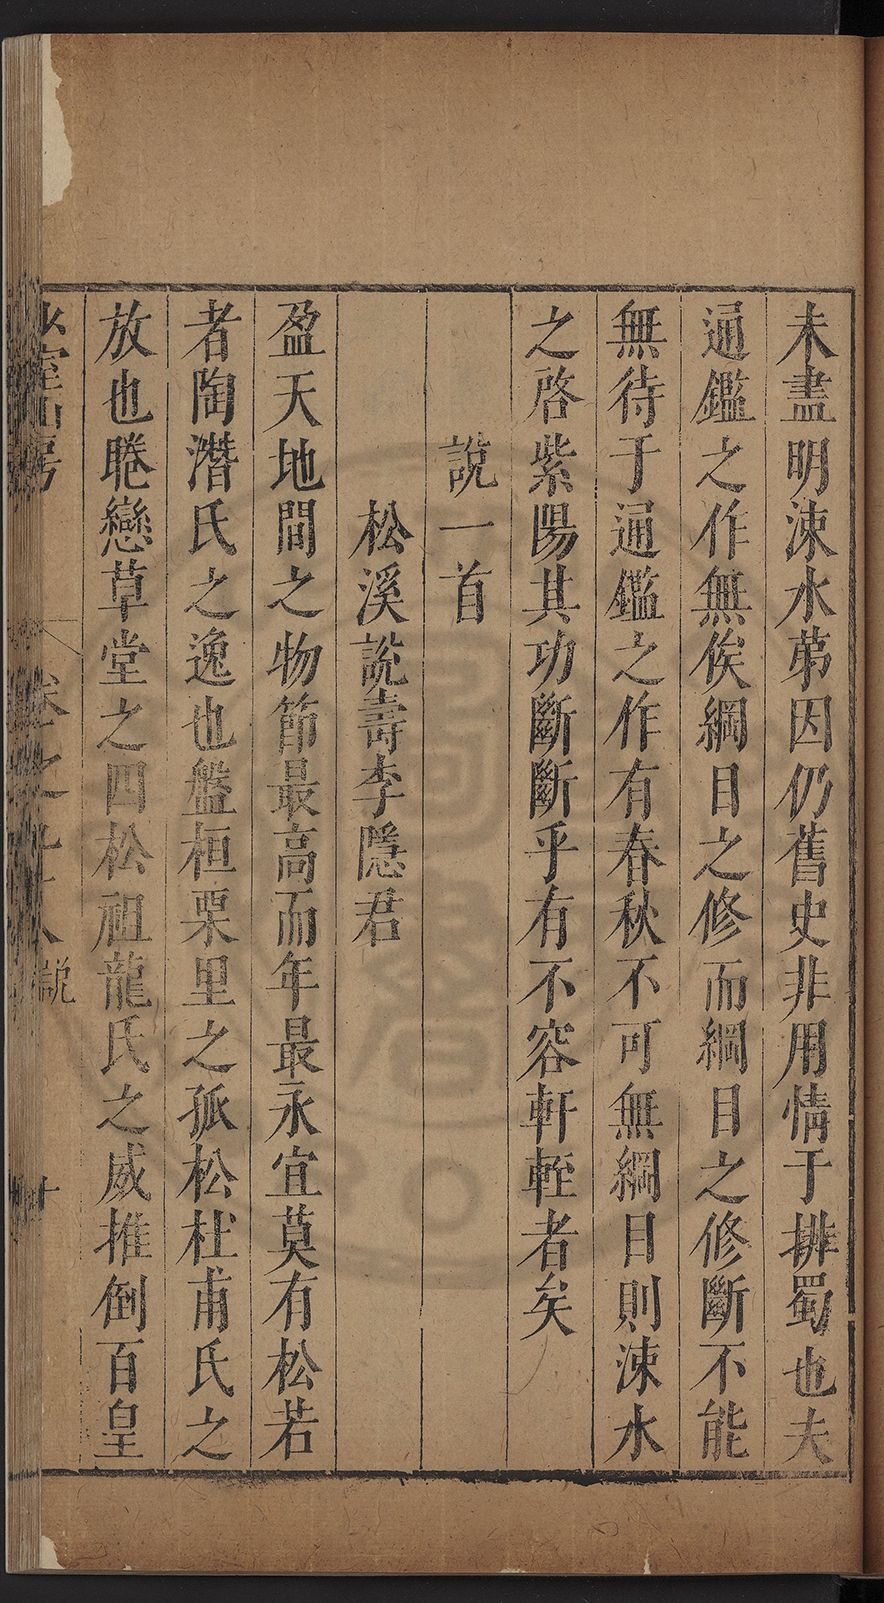 未盡明涑水第因仍舊史非用情于排蜀也夫
通鑑之作無俟綱目之修而綱目之修斷不能
無待于通鑑之作有春秋不可無綱目則涑水
之啓紫陽其功斷斷乎有不容軒輊者矣
說一首
松溪說壽李隱君
盈天地間之物節最高而年最永宜莫有松若
者陶潛氏之逸也盤桓栗里之孤松杜甫氏之
放也睠戀草堂之四松祖龍氏之威推倒百皇
室山房
卷之
說
十